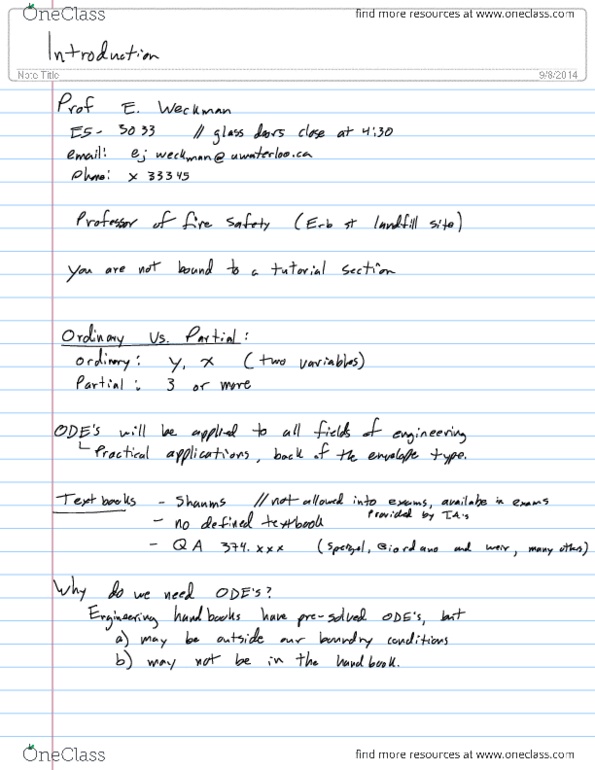 OneClass find more resources at www.oneclass.com
Introduction
Note Title 9/8/2014
Prof E. Weckman
E5- 3033 // glass doors close at 4:30
email: ejweckman@uwaterloo.ca
Phone: x 33345
Professor of fire safety (Erb st landfill site)
you are not bound to a tutorial section
Ordinary Vs. Partial:
ordinary: y, x (two variables)
Partial: 3 or more
ODE's will be applied to all fields of engineering
Practical applications, back of the envelope type.
Textbooks - Shaums // not allowed into exams, availabe in exams
Provided by TA's
- no defined textbook
- QA 374.xxx (Speigel, Giordano and weir, many others)
Why do we need ODE's?
Engineering handbooks have pre-solved ODE's, but
a) may be outside our boundry conditions
b) may not be in the handbook.
OneClass find more resources at www.oneclass.com